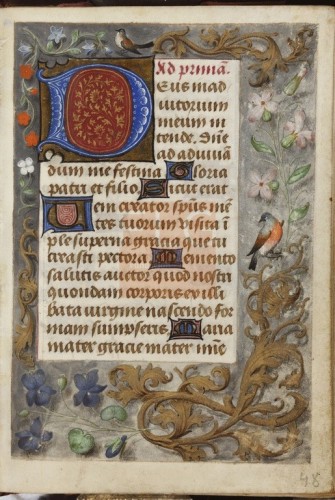 Ad primã.
Deus in ad
iutorium
meum in
tende. Dñe
ad adiuuã
dum me festina Gloria
patri et filio, Sicut erat
Ueni creator spũs mẽ
tes tuorum visita ĩ
ple superna gratia que tu
creasti pectora Memento
salutis auctor quod nostri
quondam corporis ex illi
bata virgine nascendo for
mam sumpseris Maria
mater gratie mater mĩe
48